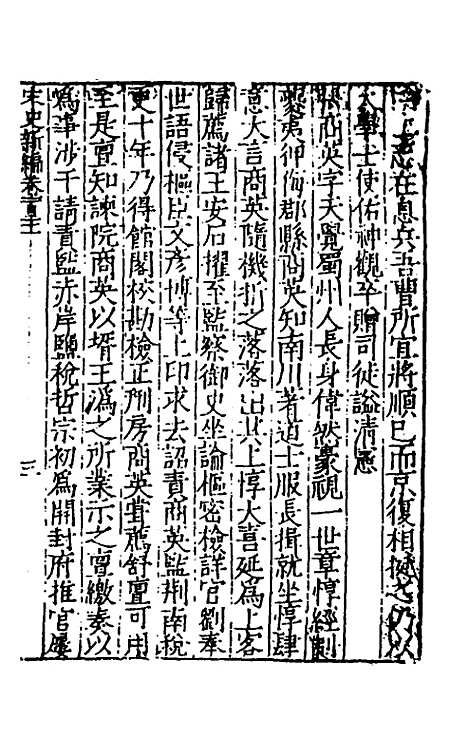 志在息兵吾曹所宜將順已而京復相
大學士使佑神觀卒贈司徒謚清憲
張商英字天覺蜀州人長身偉然豪視一世章惇經制
夔夷狎侮郡縣商英知南川著道士服長揖就坐惇肆
意大言商英隨機折之落落出其上惇大喜延為上客
歸薦諸王安石擢至監察御史坐論樞密檢詳官劉奉
世語侵樞臣文彥博等上印求去詔責商英監荆南稅
更十年乃得館閣校勘檢正刑房商英嘗薦舒亶可用
至是亶知諫院商英以壻王溈之所業示之亶繳奏以
為事涉干請責監赤岸鹽稅哲宗初為開封府推官屢
宋史新編卷一百 三